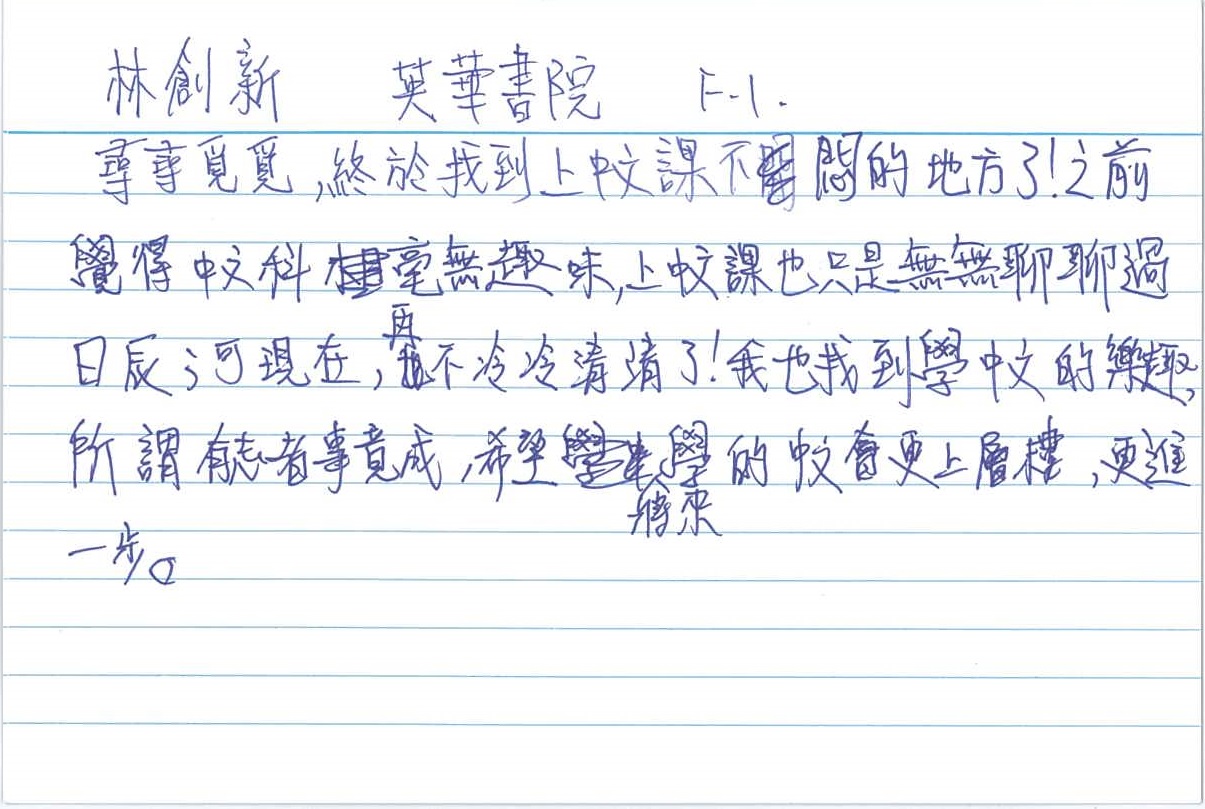 林創新 英華書院 F.1.
尋尋覓覓,終於找到上中文課不悶的地方了!之前
覺得中文科毫無趣味,上中文課也只是無無聊聊過
日辰;可現在,再不冷冷清清了!我也找到學中文的樂趣,
所謂有志者事竟成,希望將來學的中文會更上層樓,更進
一步。